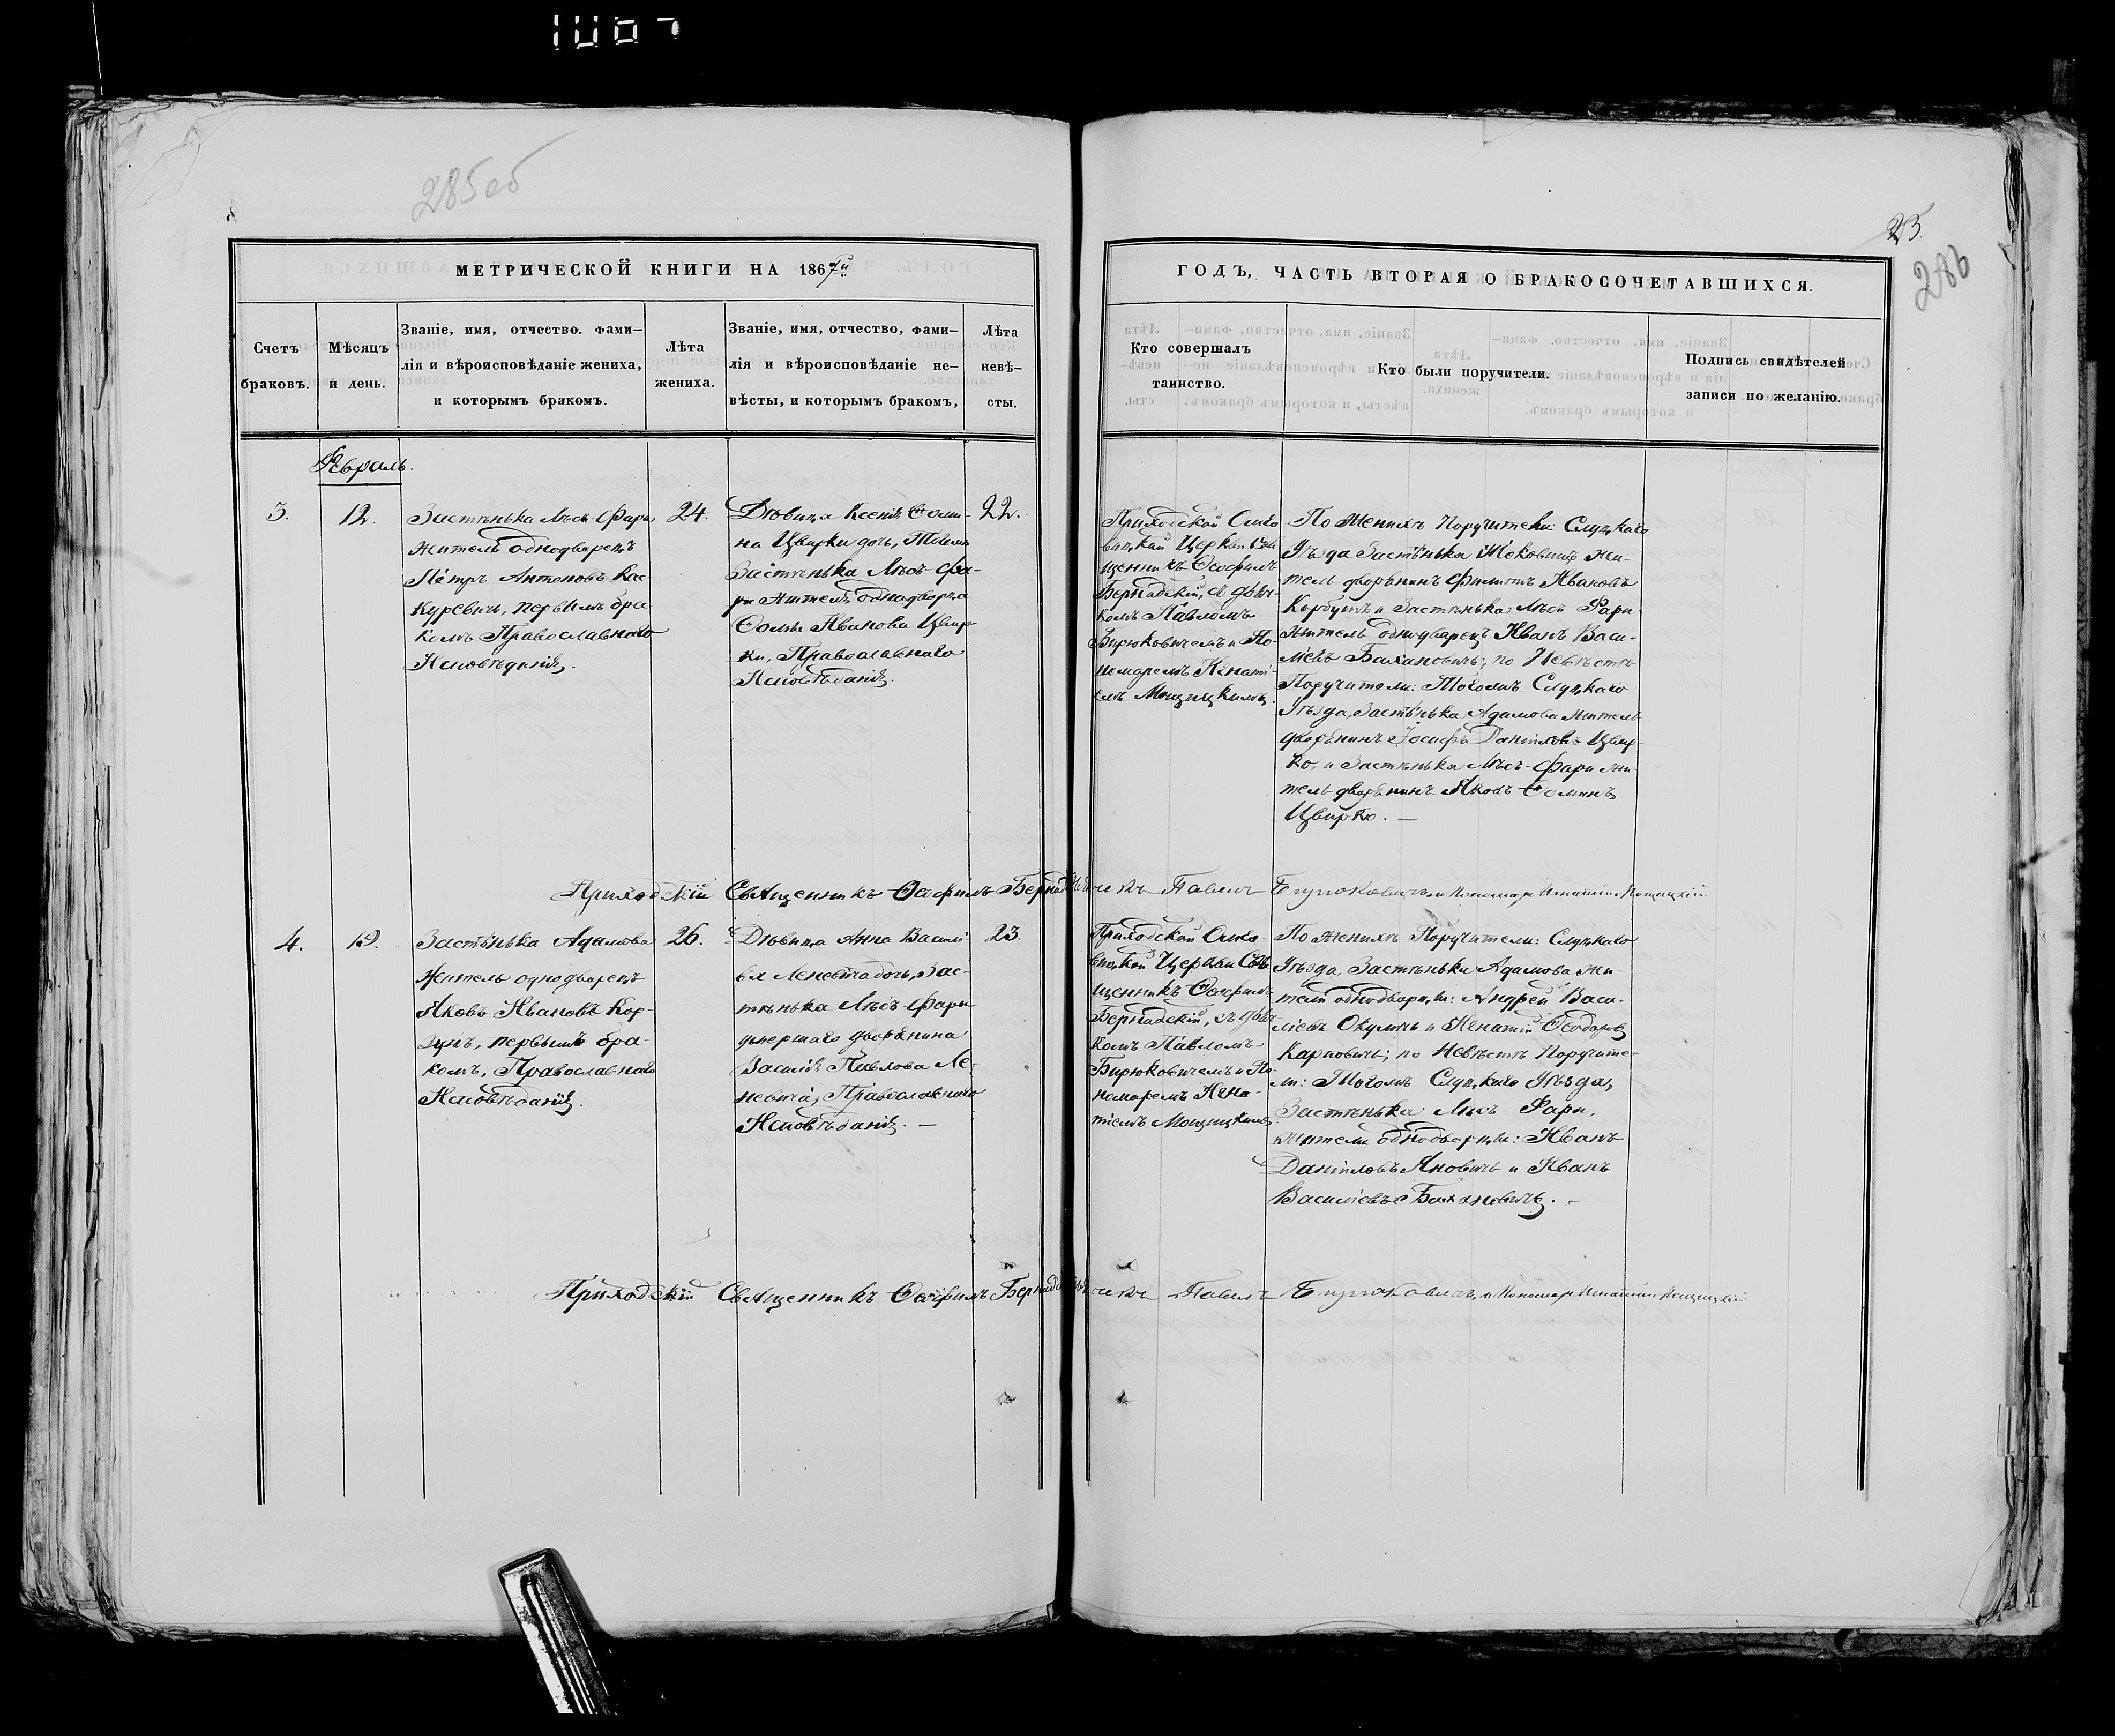 285об
25.
286
МЕТРИЧЕСКОЙ КНИГИ НА 1867й
Счетъ
браковъ.
Мѣсяцъ
и день.
Званіе, имя, отчество. фами-
лія и вѣроисповѣданіе жениха,
и которымъ бракомъ.
Лѣта
жениха.
Званіе, имя, отчество, фами-
лія и вѣроисповѣданіе не-
вѣсты, и которымъ бракомъ,
Лѣта
невѣ-
сты.
ГОДЪ, ЧАСТЬ ВТОРАЯ О БРАКОСОЧЕТАВШИХСЯ.
Кто совершалъ
таинство.
Кто были поручители.
Подпись свидѣтелей
записи по желанію.
Февраль.
3.
12.
Застѣнька Лысъ Фари,
житель однодварецъ
Пётръ Антоновъ Кас
куревичъ, первымъ бра
комъ Православнаго
Исповѣданія.
24.
Дѣвица Ксенія Ѳоми-
на Цвирки дочь,
Застѣнька Лысъ-Фа-
ри жителя однодворца
Ѳомы Иванова Цвир-
ки, Православнаго
Исповѣданія.
22.
Приходской
Церкви Свя
щенникъ Ѳеофилъ
Бернадскій, съ дьяч-
комъ Павломъ
Бирюковичемъ и По-
номаремъ Игнаті-
емъ Мощицкимъ.
По Женихѣ Поручители: Слуцкаго
Уѣзда Застѣнька жи-
тель дворянинъ Филипъ Ивановъ
Корбутъ и Застѣнька Лысъ Фари
житель однодварецъ Иванъ Васи-
ліевъ Баханович; по Невѣстѣ
Поручители: Тогожъ Слуцкаго
Уѣзда, Застѣнька Адамова житель
дворянинъ Іосифъ Даніиловъ Цвир-
ко, и Застѣнька Лысъ-Фари жи-
тель дворянинъ Яковъ Ѳоминъ
Цвирко. —
Приходскій Священникъ Ѳеофилъ Бернадскій Павелъ Бирюковичъ и Пономарь Игнатій Мощицкій
4.
19.
Застѣнька Адамова
житель однодворецъ
Яковъ Ивановъ Кор-
зунъ, первымъ бра-
комъ, Православнаго
Исповѣданія.
26.
Дѣвица Анна Василі
ева дочь, Зас-
тѣнька Лысъ-Фари
умершаго дворянина
Василія Павлова Ле-
Православнаго
Исповѣданія. —
23.
Приходской
Церкви Свя
щенникъ Ѳеофилъ
Бернадскій, съ дьяч
комъ Павломъ
Бирюковичемъ и По-
номаремъ Игна-
тіемъ Мощицкимъ.
По Женихѣ Поручители: Слуцкаго
Уѣзда, Застѣнька Адамова жи-
тели однодворцы: Андрей Васи-
ліевъ Окуличъ и Игнатій Ѳеодоровъ
Карповичъ; по Невѣстѣ Поручите-
ли: Тогожъ Слуцкаго Уѣзда,
Застѣнька Лысъ Фари,
жители однодворцы: Иванъ
Даніиловъ Яновичъ и Иванъ
Василіевъ Баханович. —
Приходскій Священникъ Ѳеофилъ Бернадскій Павелъ Бирюковичъ и Пономарь Игнатій Мощицкій